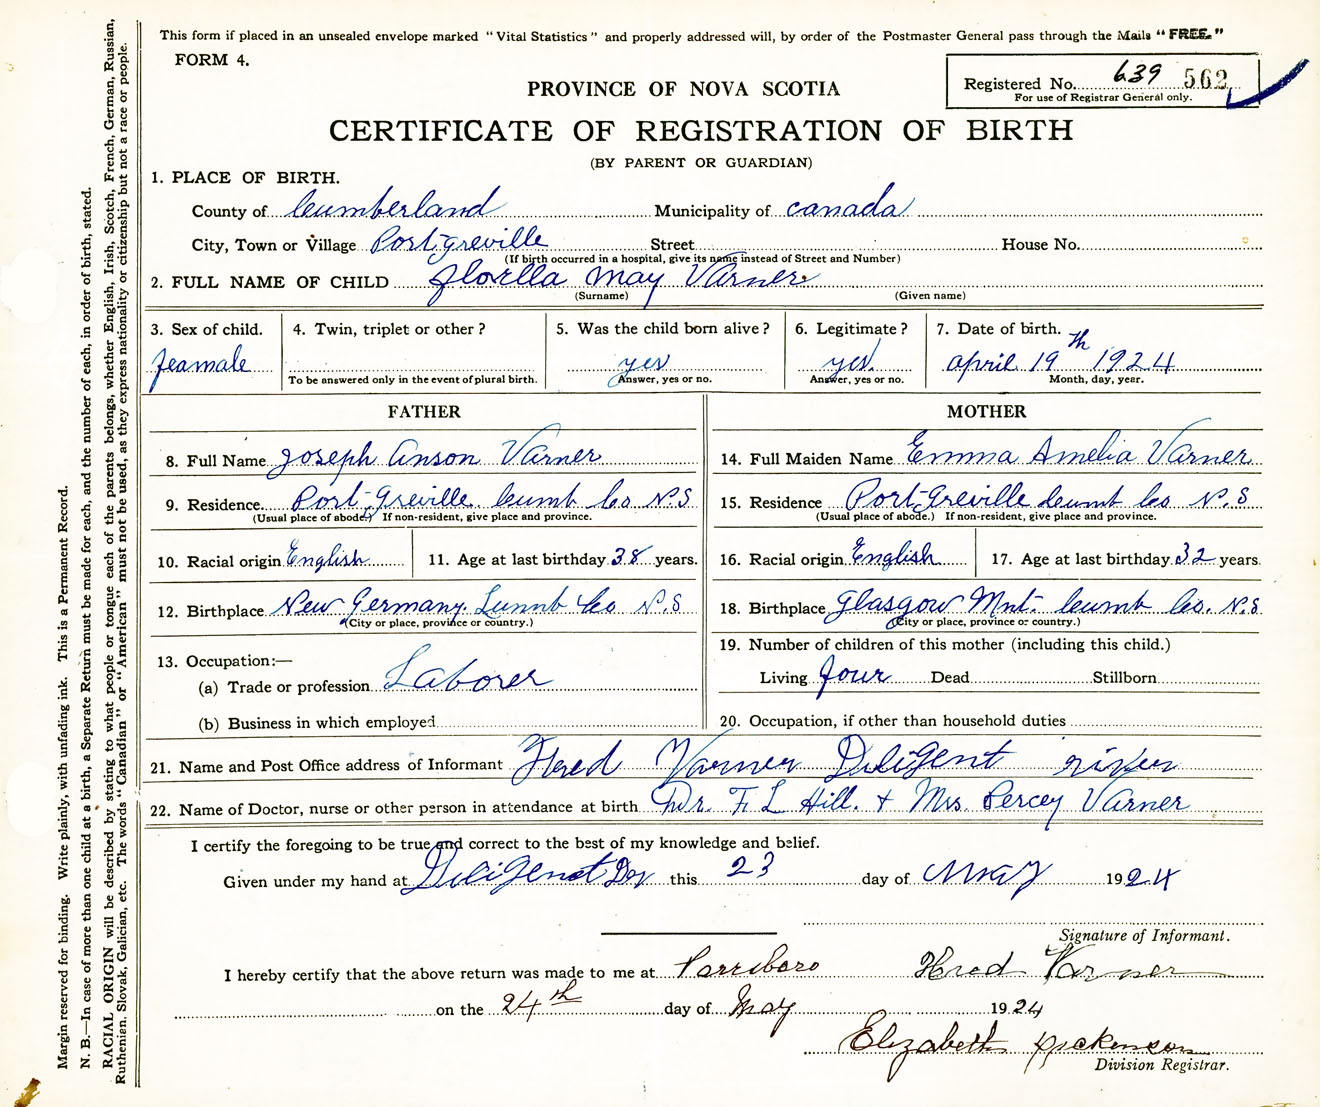 This form if placed in an unsealed envelope marked "Vital Statistics" and properly addressed will, by order of the Postmaster General pass through the Mails "FREE."
FORM 4.
Registered No. 639 562
For use of Registrar General only.
PROVINCE OF NOVA SCOTIA
CERTIFICATE OF REGISTRATION OF BIRTH
(BY PARENT OR GUARDIAN)
1. PLACE OF BIRTH.
County of Cumberland Municipality of Canada
City, Town or Village Port-Greville Street House No.
(If birth occurred in a hospital, give its name instead of Street and Number)
2. FULL NAME OF CHILD florella May Varner
(Surname) (Given name)
3. Sex of child. 4. Twin, triplet or other? 5. Was the child born alive? 6. Legitimate? 7. Date of birth.
feamale yes yes. april 19th 1924
To be answered only in the event of plural birth. Answer, yes or no. Answer, yes or no. Month, day, year.
FATHER MOTHER
8. Full Name Joseph Anson Varner 14. Full Maiden Name Emma Amelia Varner
9. Residence. Port-Greville Cumb Co N.S 15. Residence Port-Greville Cumb Co N.S
(Usual place of abode.) If non-resident, give place and province. (Usual place of abode.) If non-resident, give place and province.
10. Racial origin English 11. Age at last birthday 38 years. 16. Racial origin English 17. Age at last birthday 32 years.
12. Birthplace New Germany. Lunnb Co N.S 18. Birthplace Glasgow Mnt. Cumb Co. N.S
(City or place, province or country.) (City or place, province or country.)
19. Number of children of this mother (including this child.)
13. Occupation:—
(a) Trade or profession Laborer Living four Dead Stillborn
(b) Business in which employed 20. Occupation, if other than household duties
21. Name and Post Office address of Informant Fred Varner Diligent river
22. Name of Doctor, nurse or other person in attendance at birth Dr. F. L Hill. + Mrs Percey Varner
I certify the foregoing to be true and correct to the best of my knowledge and belief.
Given under my hand at Diligent this 23 day of May 1924
Signature of Informant.
I hereby certify that the above return was made to me at Parrsboro Fred Varner
on the 24th day of May 1924
Elizabeth Dickenson
Division Registrar.
Margin reserved for binding. Write plainly, with unfading ink. This is a Permanent Record.
N. B.—In case of more than one child at a birth, a Separate Return must be made for each, and the number of each, in order of birth, stated.
RACIAL ORIGIN will be described by stating to what people or tongue each of the parents belongs, whether English, Irish, Scotch, French, German, Russian,
Ruthenian, Slovak, Galician, etc. The words "Canadian" or "American" must not be used, as they express nationality or citizenship but not a race or people.